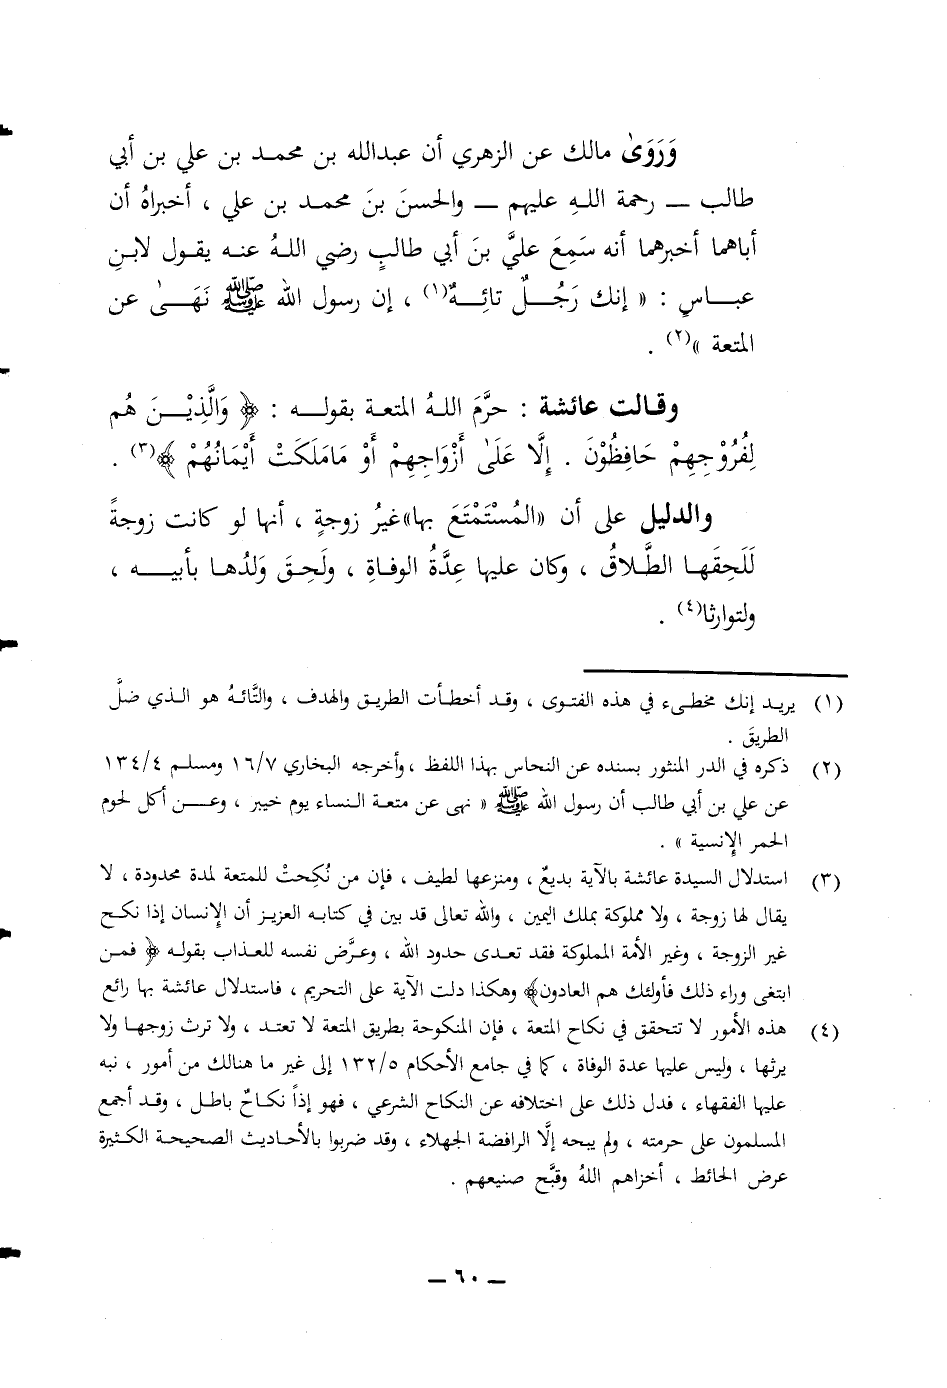 وَرَوَىٰ مالك عن الزهري أن عبدالله بن محمد بن علي بن أبي
طالب ــ رحمة اللهِ عليهم ــ والحسنَ بنَ محمد بن علي ، أخبراهُ أن
أباهما أخبرهما أنه سَمِعَ عليَّ بنَ أبي طالبٍ رضي اللهُ عنه يقول لابنِ
عباسٍ : « إنك رَجُلٌ تائِهٌ(١) ، إن رسول الله ﷺ نَهَىٰ عن
المتعة »(٢) .
وقالت عائشة : حرَّمَ اللهُ المتعة بقوله : ﴿ وَالَّذِيْنَ هُم
لِفُرُوْجِهِمْ حَافِظُوْنَ . إِلَّا عَلَىٰ أَزْوَاجِهِمْ أَوْ مَامَلَكَتْ أَيْمَانُهُمْ ﴾(٣) .
والدليل على أن «المُسْتَمْتَعَ بها»غيرُ زوجةٍ ، أنها لو كانت زوجةً
لَلَحِقَها الطَّلاقُ ، وكان عليها عِدَّةُ الوفاةِ ، ولَحِقَ وَلدُها بأبيه ،
ولتوارثا(٤) .
(١) يريد إنك مخطىء في هذه الفتوى ، وقد أخطأت الطريق والهدف ، والتَّائهُ هو الذي ضلَّ
الطريقَ .
(٢) ذكره في الدر المنثور بسنده عن النحاس بهذا اللفظ ،وأخرجه البخاري ١٦/٧ ومسلم ١٣٤/٤
عن علي بن أبي طالب أن رسول الله ﷺ « نهى عن متعة النساء يوم خيبر ، وعن أكل لحوم
الحمر الإنسية » .
(٣) استدلال السيدة عائشة بالآية بديعٌ ، ومنزعها لطيف ، فإن من نُكِحتْ للمتعة لمدة محدودة ، لا
يقال لها زوجة ، ولا مملوكة بملك اليمين ، والله تعالى قد بين في كتابه العزيز أن الإنسان إذا نكح
غير الزوجة ، وغير الأمة المملوكة فقد تعدى حدود الله ، وعرَّض نفسه للعذاب بقوله ﴿ فمن
ابتغى وراء ذلك فأولئك هم العادون﴾ وهكذا دلت الآية على التحريم ، فاستدلال عائشة بها رائع
(٤) هذه الأمور لا تتحقق في نكاح المتعة ، فإن المنكوحة بطريق المتعة لا تعتد ، ولا ترث زوجها ولا
يرثها ، وليس عليها عدة الوفاة ، كما في جامع الأحكام ١٣٢/٥ إلى غير ما هنالك من أمور ، نبه
عليها الفقهاء ، فدل ذلك على اختلافه عن النكاح الشرعي ، فهو إذاً نكاحٌ باطل ، وقد أجمع
المسلمون على حرمته ، ولم يبحه إلَّا الرافضة الجهلاء ، وقد ضربوا بالأحاديث الصحيحة الكثيرة
عرض الحائط ، أخزاهم اللهُ وقبَّح صنيعهم .
ــ ٦٠ ــ